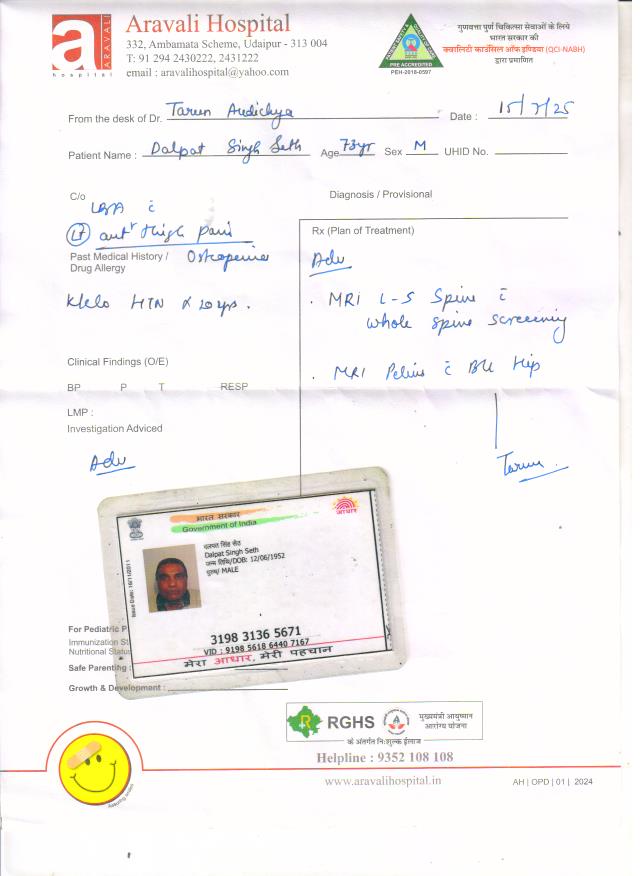 Aravali Hospital
332, Ambamata Scheme, Udaipur - 313 004
T: 91 294 2430222, 2431222
email : aravalihospital@yahoo.com
a ARAVALI
hospital
PRE ACCREDITED
PEH-2018-0597
गुणवत्ता पूर्ण चिकित्सा सेवाओं के लिये
भारत सरकार की
क्वालिटी काउंसिल ऑफ इण्डिया (QCI-NABH)
द्वारा प्रमाणित
From the desk of Dr. Tarun Audichya Date : 15/7/25
Patient Name : Dalpat Singh Seth Age 73yr Sex M UHID No.
C/o
LBA c̄
Lt antr thigh pain
Diagnosis / Provisional
Past Medical History / Osteopenia
Drug Allergy
K/c/o HTN x 20 yrs.
Rx (Plan of Treatment)
Adv
. MRI L-S Spine c̄
whole spine screening
. MRI Pelvis c̄ B/L Hip
Tarun
Clinical Findings (O/E)
BP P T RESP
LMP :
Investigation Adviced
Adv
भारत सरकार
Government of India
आधार
Issue Date: 16/11/2011
दलपत सिंह सेठ
Dalpat Singh Seth
जन्म तिथि/DOB: 12/06/1952
पुरुष/ MALE
3198 3136 5671
VID : 9198 5618 6440 7167
मेरा आधार, मेरी पहचान
For Pediatric P
Immunization St
Nutritional Status
Safe Parenting :
Growth & Development :
RGHS
मुख्यमंत्री आयुष्मान
आरोग्य योजना
के अंतर्गत नि:शुल्क ईलाज
Helpline : 9352 108 108
www.aravalihospital.in
AH | OPD | 01 | 2024